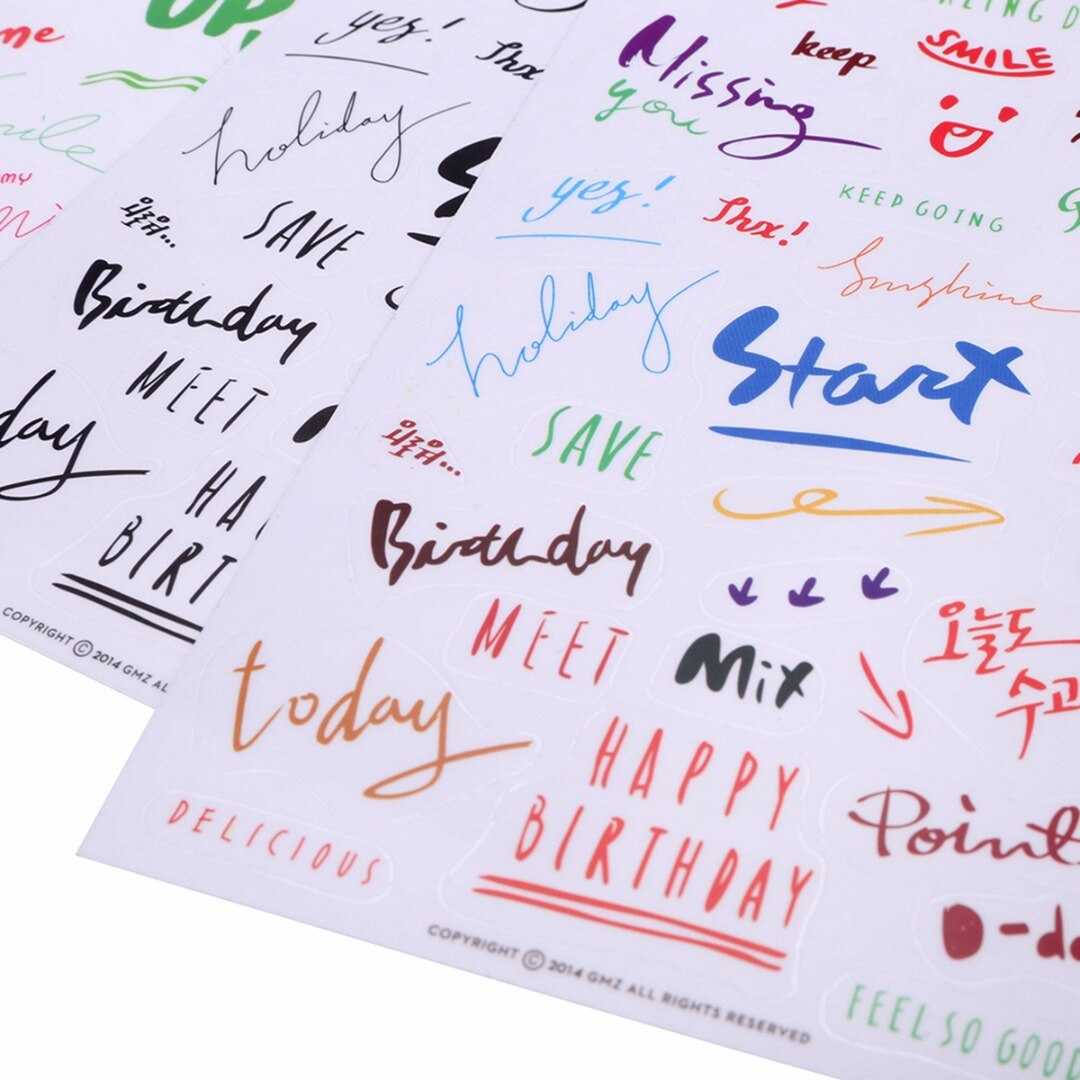 UP!
me
my
yez!
Thx
holiday
SAVE
외로워...
Birthday
MEET
day
HA
BIRT
COPYRIGHT © 2014 GMZ ALL
Missing
you
keep
SMILE
yez!
Thx!
KEEP GOING
holiday
Sunshine
Start
외로워...
SAVE
Birthday
MEET
Mix
오늘도
수고
today
HAPPY
BIRTHDAY
Point
D-da
DELICIOUS
FEEL SO GOOD
COPYRIGHT © 2014 GMZ ALL RIGHTS RESERVED